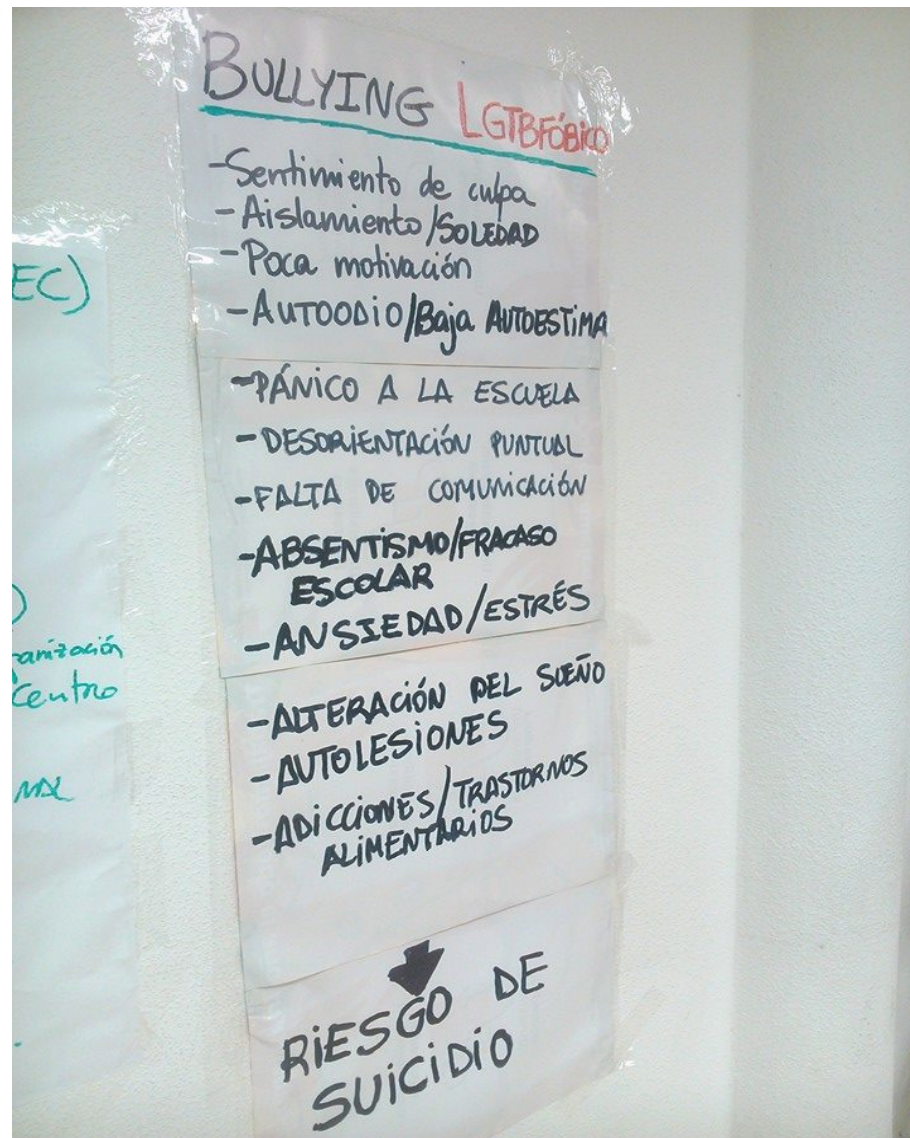 BULLYING LGTBFÓBICO
-Sentimiento de culpa
-Aislamiento/SOLEDAD
-Poca motivación
-AUTOODIO/Baja AUTOESTIMA
-PÁNICO A LA ESCUELA
-DESORIENTACIÓN PUNTUAL
-FALTA DE COMUNICACIÓN
-ABSENTISMO/FRACASO
ESCOLAR
-ANSIEDAD/ESTRÉS
-ALTERACIÓN DEL SUEÑO
-AUTOLESIONES
-ADICCIONES/TRASTORNOS
ALIMENTARIOS
RIESGO DE
SUICIDIO
EC)
)
anización
Centro